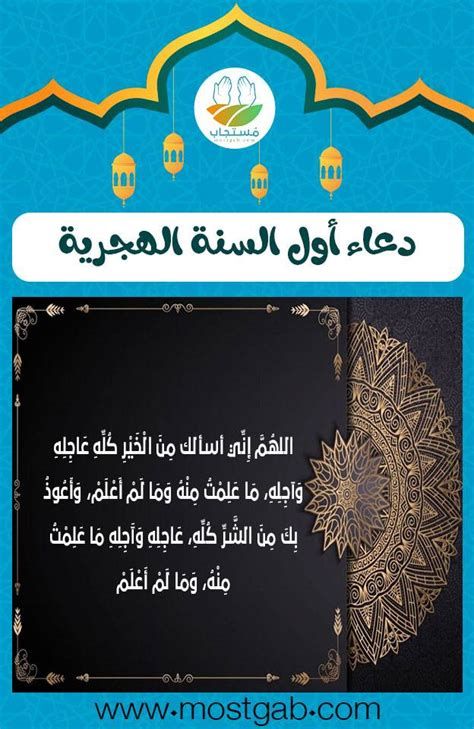 مُستجاب
mostgab.com
دعاء أول السنة الهجرية
اللهُمَّ إِنِّي أسألك مِنَ الْخَيْرِ كُلِّهِ عَاجِلِهِ
وَآجِلِهِ، مَا عَلِمْتُ مِنْهُ وَمَا لَمْ أَعْلَمْ، وَأَعُوذُ
بِكَ مِنَ الشَّرِّ كُلِّهِ، عَاجِلِهِ وَآجِلِهِ مَا عَلِمْتُ
مِنْهُ، وَمَا لَمْ أَعْلَمْ
www.mostgab.com